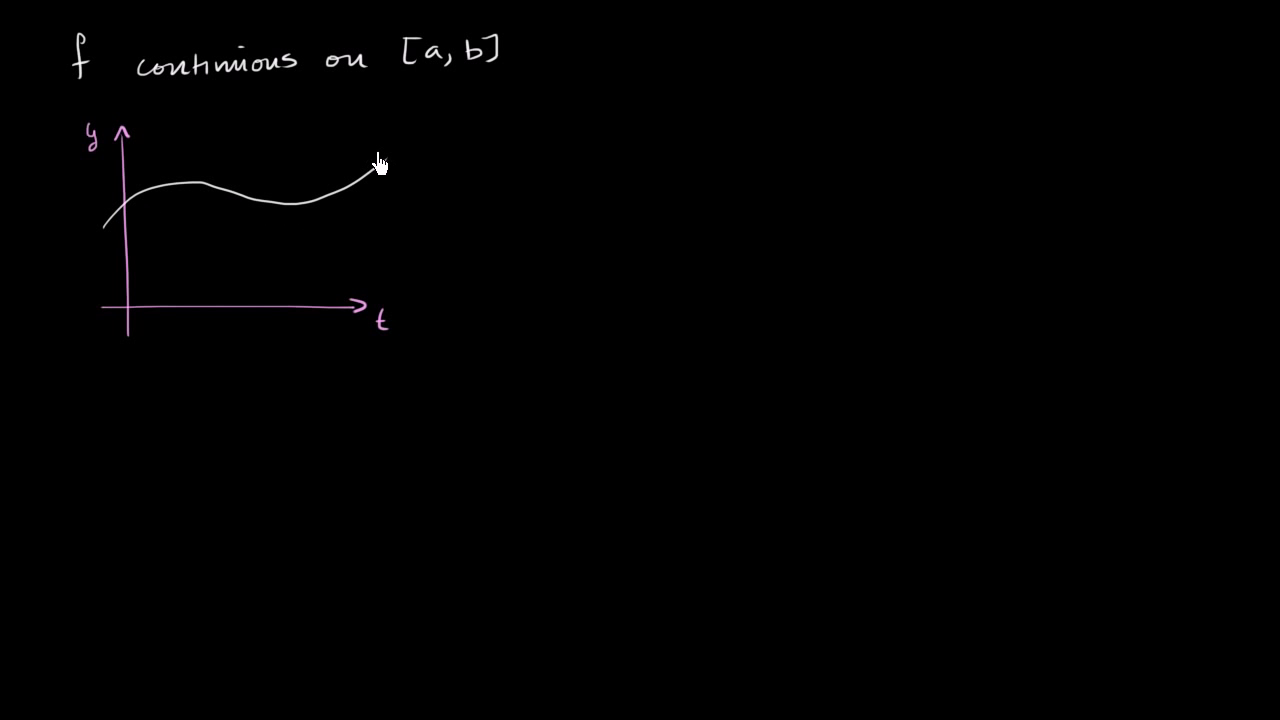 f continuous on [a, b]
y
t